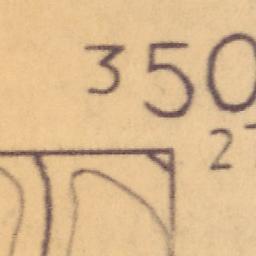 350
2